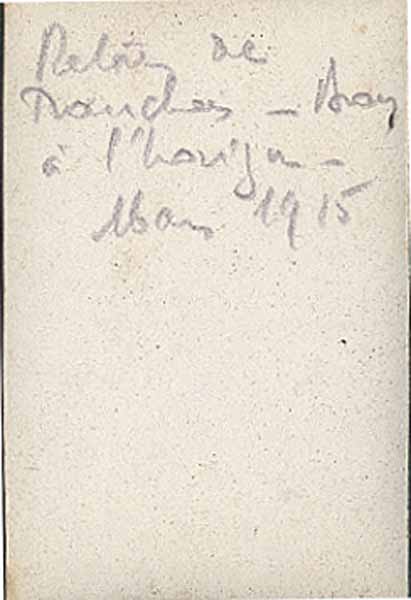 Relève de
Tranchées - Bray
à l'horizon -
Mars 1915